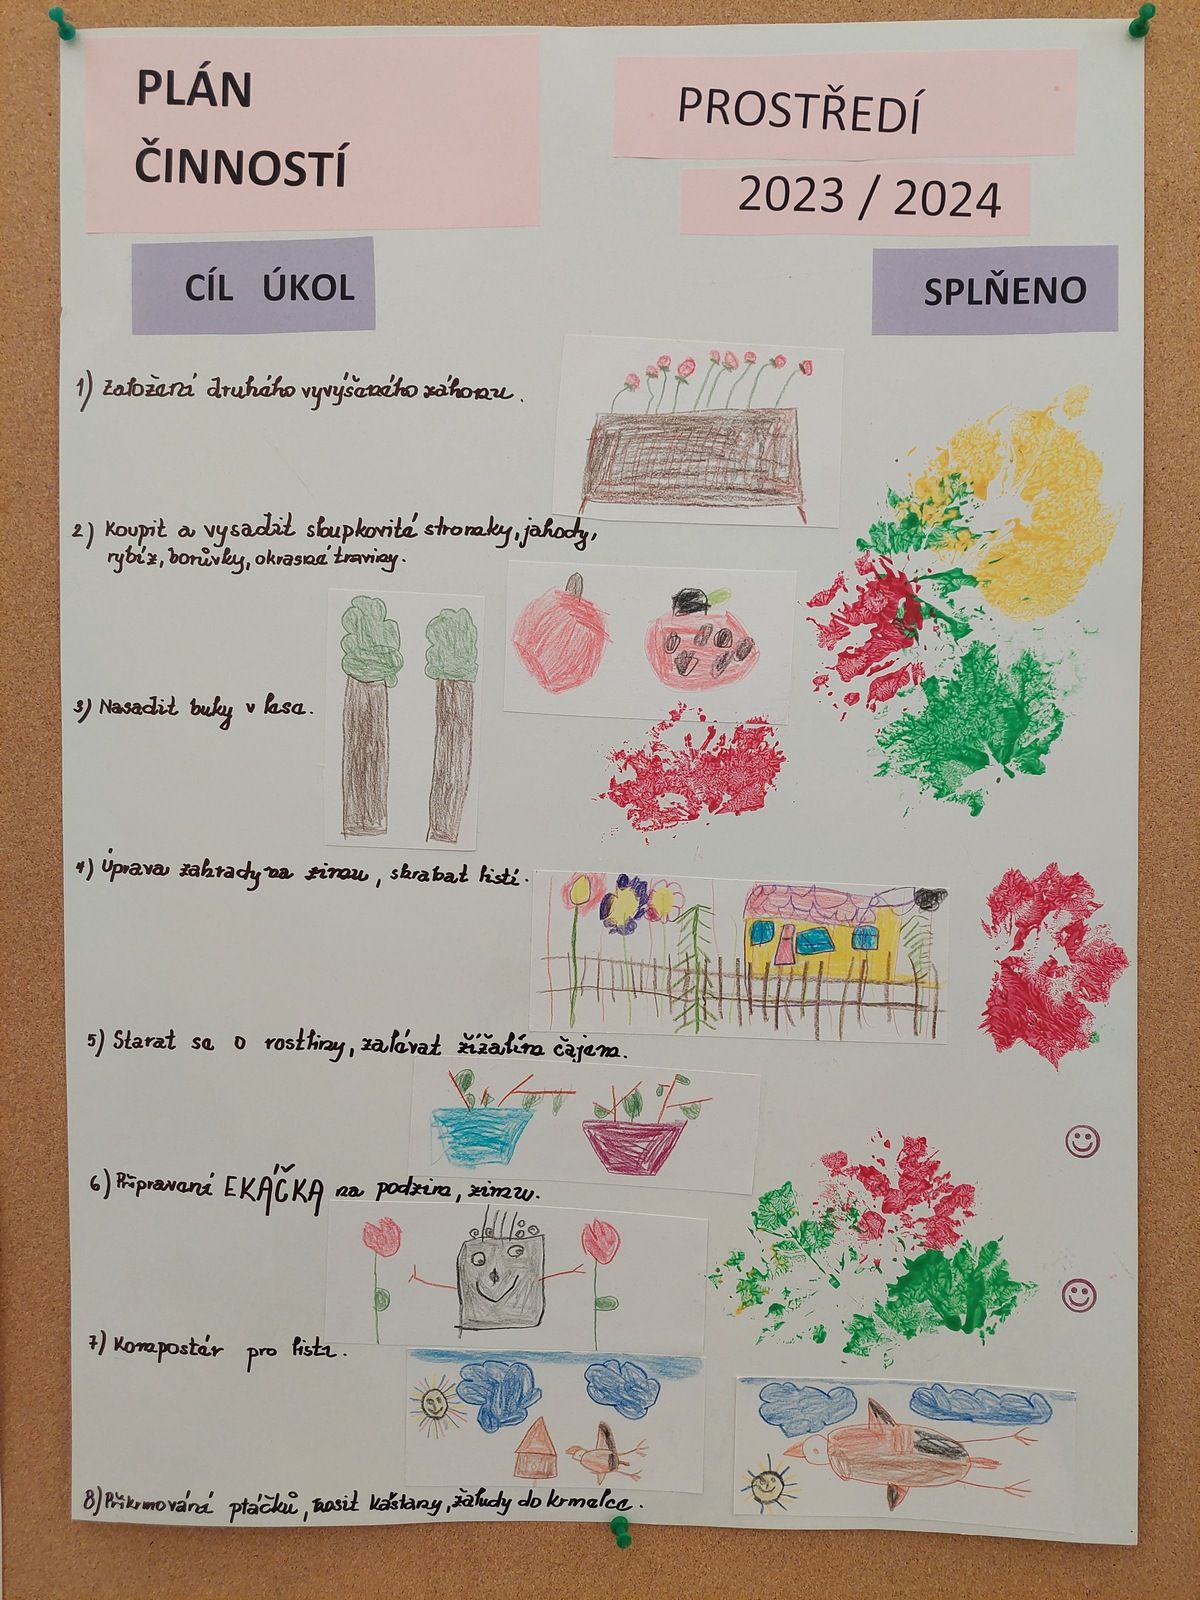 PLÁN
ČINNOSTÍ
PROSTŘEDÍ
2023 / 2024
CÍL ÚKOL
SPLŇENO
1) Založení druhého vyvýšeného záhonu.
2) Koupit a vysadit sloupkovité stromky, jahody,
rybíz, borůvky, okrasné traviny.
3) Nasadit buky v lese.
4) Úprava zahrady na zimu, shrabat listí.
5) Starat se o rostliny, zalévat žížalím čajem.
6) Připravení EKÁČKA na podzim, zimu.
7) Kompostér pro listí.
8) Přikrmování ptáčků, nosit kaštany, žaludy do krmelce.